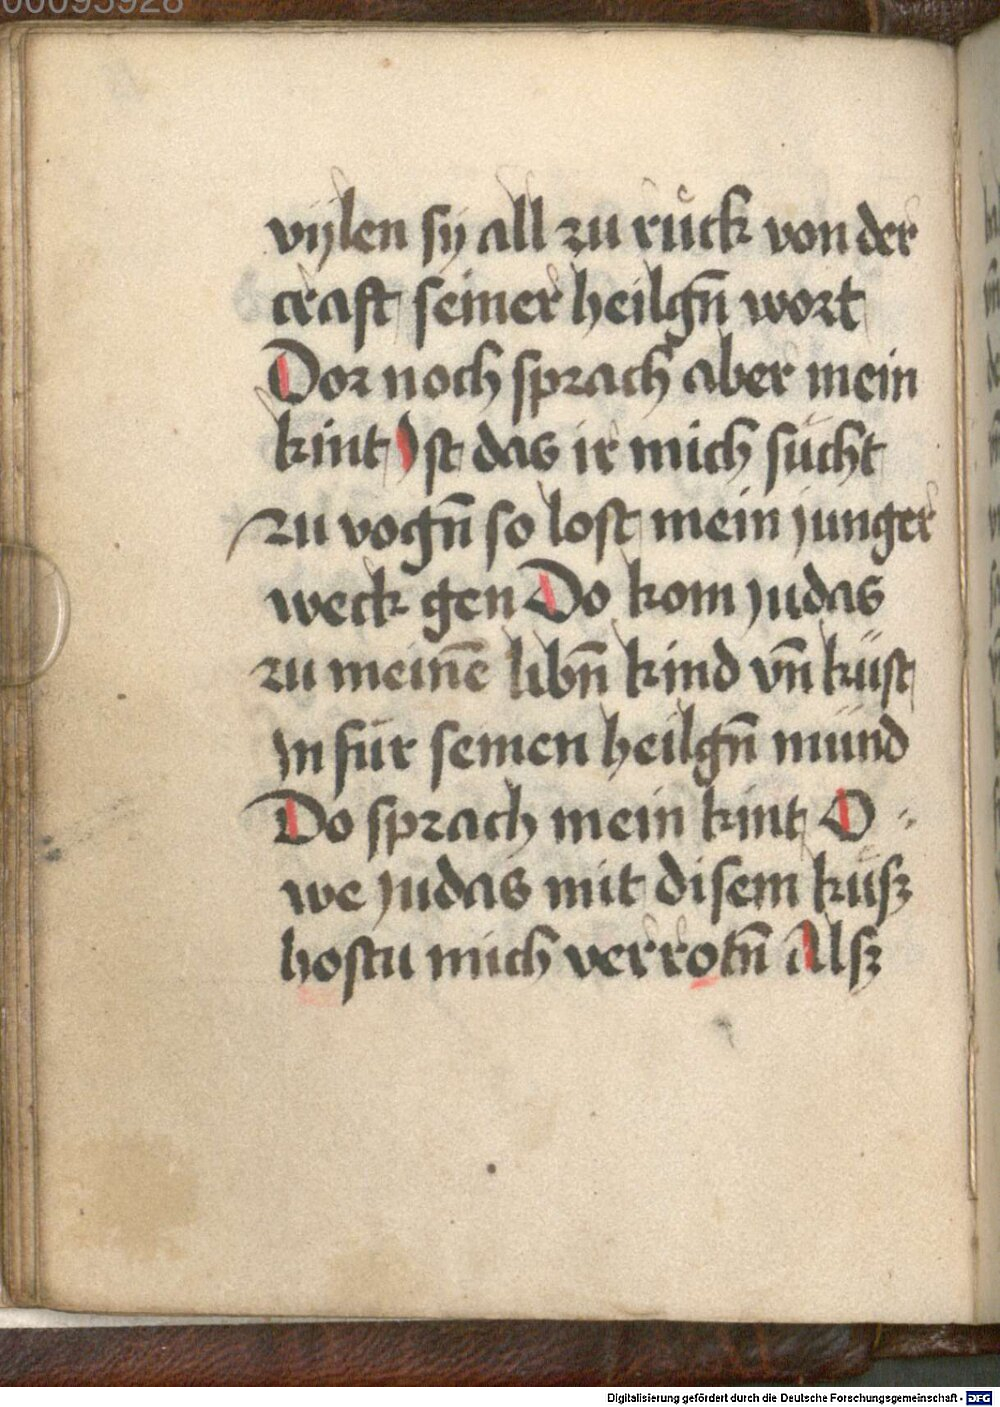 00095928
vijlen sij all zu ruͤck von der
craft seiner heilgn̄ wort
Dor noch sprach aber mein
kint Ist das ir mich suͤcht
zu vogn̄ so lost mein junger
weck gen Do kom judas
zu meinē libn̄ kind vn̄ kuͤst
in fuͤr seinen heilgn̄ muͤnd
Do sprach mein kint O ⸗
we judas mit disem kuͤsz
hostu mich verrotn̄ Alsz
Digitalisierung gefördert durch die Deutsche Forschungsgemeinschaft - DFG